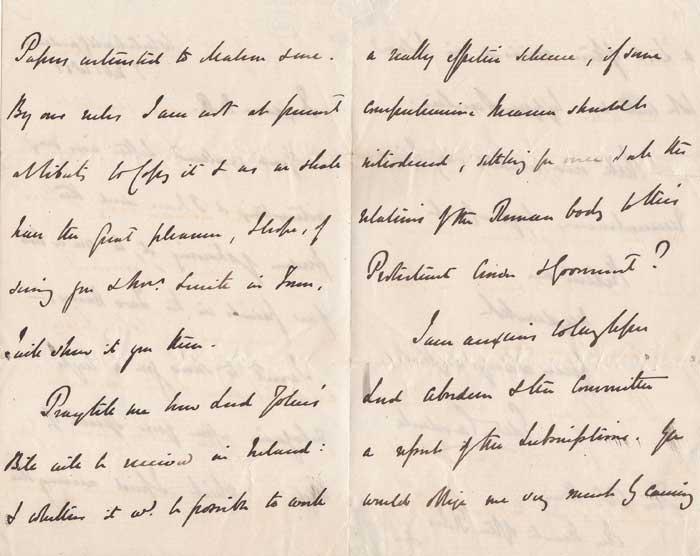 Papers entrusted to Mahon sure.
By our rules I am not at present
at liberty to Copy it & as we shall
have the great pleasure, I hope, of
seeing you & Mrs. Smith in Town,
I will show it you then.
Pray tell me how Lord John's
Bill will be received in Ireland:
& whether it wd. be possible to work
a really effective scheme, if some
comprehensive Measure should be
introduced, settling for once & all the
relations of the Roman body to this
Protestant Crown & Government?
I am anxious to lay before
Lord Aberdeen & the Committee
a report of the Subscriptions. You
would oblige me very much by causing